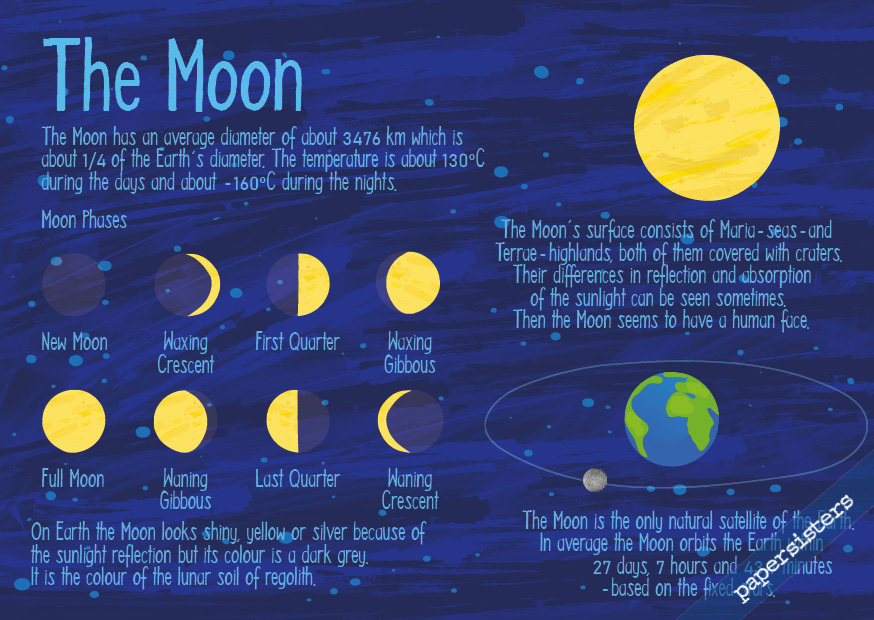 The Moon
The Moon has an average diameter of about 3476 km which is
about 1/4 of the Earth´s diameter. The temperature is about 130°C
during the days and about -160°C during the nights.
Moon Phases
New Moon
Waxing
Crescent
First Quarter
Waxing
Gibbous
Full Moon
Waning
Gibbous
Last Quarter
Waning
Crescent
On Earth the Moon looks shiny, yellow or silver because of
the sunlight reflection but its colour is a dark grey.
It is the colour of the lunar soil of regolith.
The Moon´s surface consists of Maria-seas-and
Terrae-highlands, both of them covered with craters.
Their differences in reflection and absorption
of the sunlight can be seen sometimes.
Then the Moon seems to have a human face.
The Moon is the only natural satellite of the Earth.
In average the Moon orbits the Earth within
27 days, 7 hours and minutes
-based on the fixed
papersisters